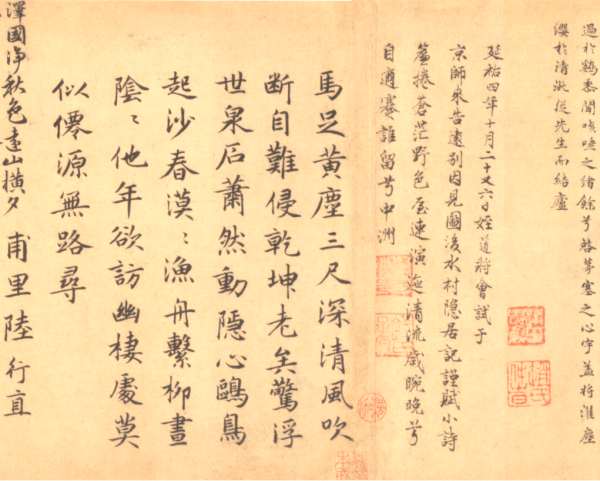 過於鷄黍聞咳唾之緒餘兮啓茅塞之心宇蓋将濯塵
纓於清泚從先生而結廬
延祐四年十月二十又六日姪道将會試于
京師來告遠別因見圖後水村隱居記謹賦小詩
簾捲蒼茫野色屋連演迤清流歲晼晚兮
自蹇誰留兮中洲
馬足黃塵三尺深清風吹
断自難侵乾坤老矣驚浮
世泉石蕭然動隱心鷗鳥
起沙春漠〻漁舟繫柳晝
陰〻他年欲訪幽棲處莫
似僊源無路尋
甫里陸行直
澤國淨秋色遠山橫夕